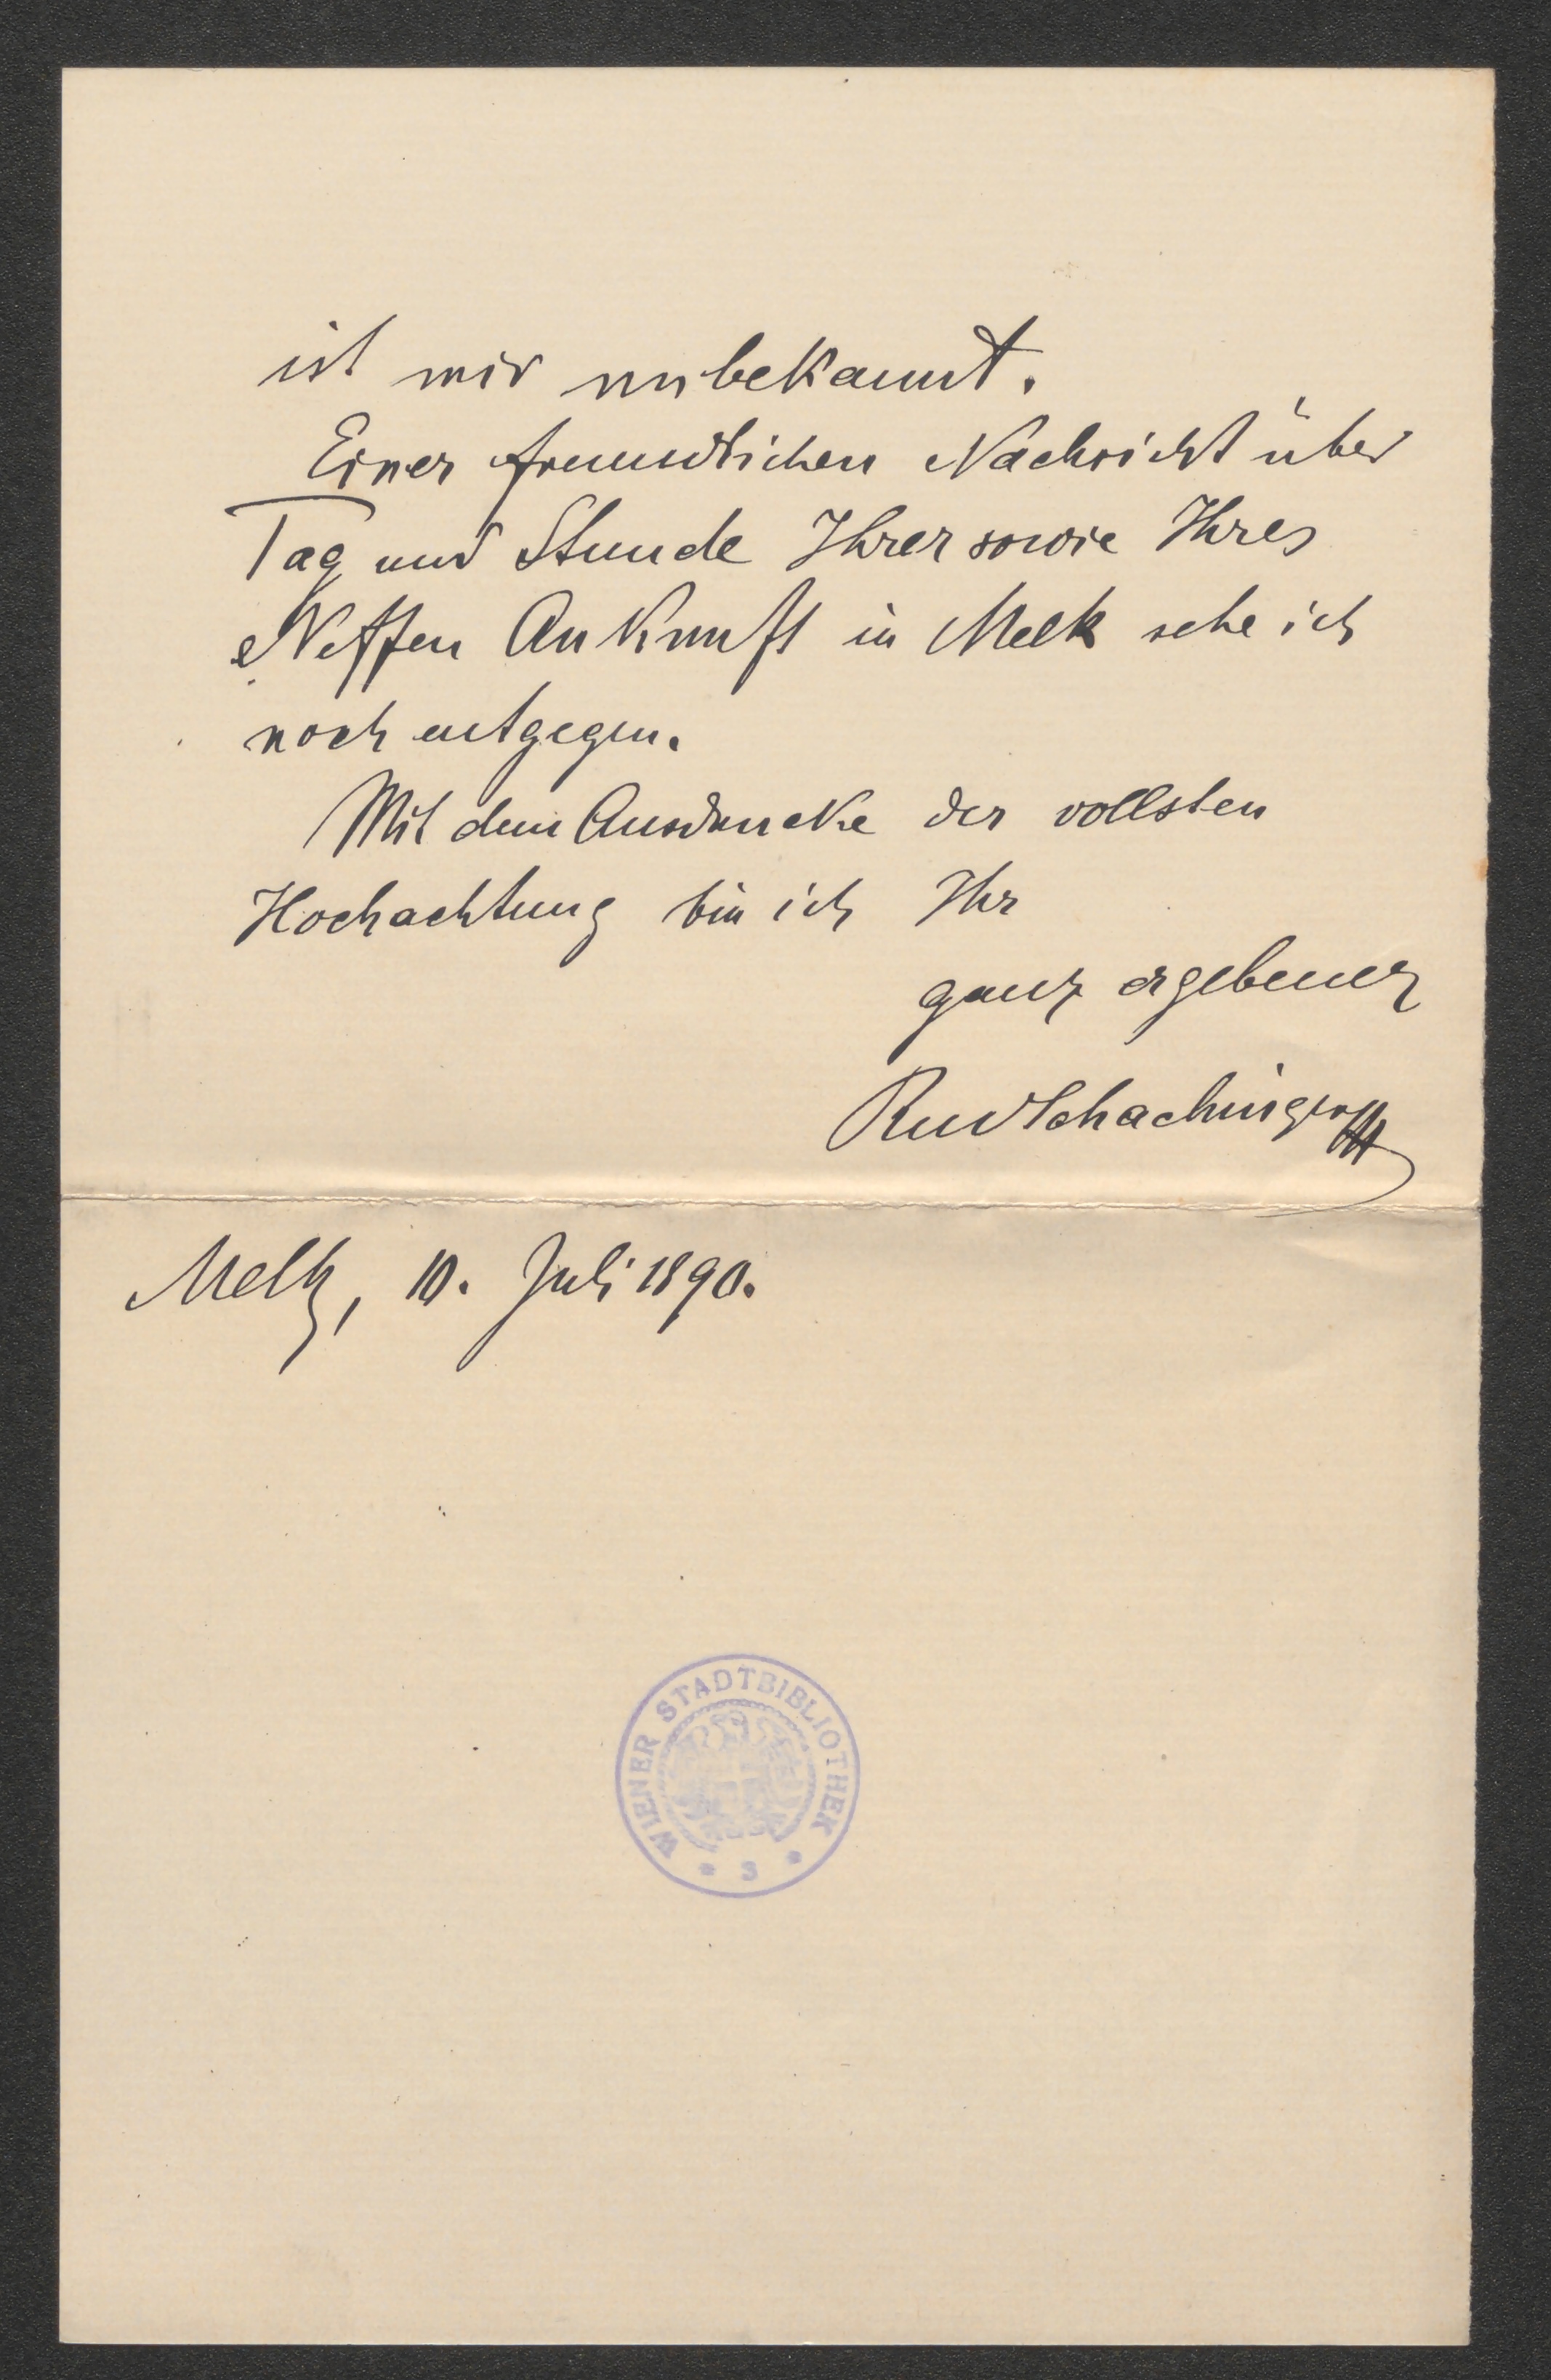 ist mir unbekannt.
Einer freundlichen Nachricht über
Tag und Stunde Ihrer sowie Ihres
Neffen Ankunft in Melk sehe ich
noch entgegen.
Mit dem Ausdrucke der vollsten
Hochachtung bin ich Ihr
ganz ergebener
Rud Schachinger
Melk, 10. Juli 1890.
WIENER STADTBIBLIOTHEK
* 3 *